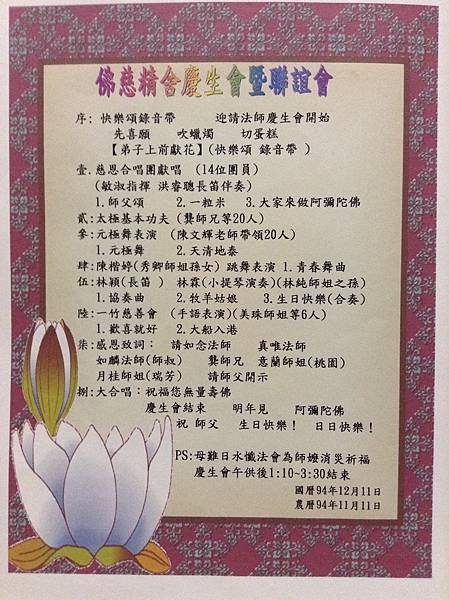 佛慈精舍慶生會暨聯誼會
序: 快樂頌錄音帶 迎請法師慶生會開始
先喜願 吹蠟燭 切蛋糕
【弟子上前獻花】(快樂頌 錄音帶 )
壹.慈恩合唱團獻唱 (14位團員)
(敏淑指揮 洪睿聰長笛伴奏)
1.師父頌 2.一粒米 3.大家來做阿彌陀佛
貳:太極基本功夫 (龔師兄等20人)
參:元極舞表演 (陳文輝老師帶領20人)
1.元極舞 2.天清地泰
肆:陳楷婷(秀卿師姐孫女) 跳舞表演 1.青春舞曲
伍:林穎(長笛 ) 林霖(小提琴演奏)(林純師姐之孫)
1.協奏曲 2.牧羊姑娘 3.生日快樂(合奏)
陸:一竹慈善會 (手語表演)(美珠師姐等6人)
1.歡喜就好 2.大船入港
柒:感恩致詞: 請如念法師 真唯法師
如麟法師(師叔) 龔師兄 意蘭師姐(桃園)
月桂師姐(瑞芳) 請師父開示
捌:大合唱:祝福您無量壽佛
慶生會結束 明年見 阿彌陀佛
祝 師父 生日快樂! 日日快樂!
PS:母難日水懺法會為師嬤消災祈福
慶生會午供後1:10~3:30結束
國曆94年12月11日
農曆94年11月11日